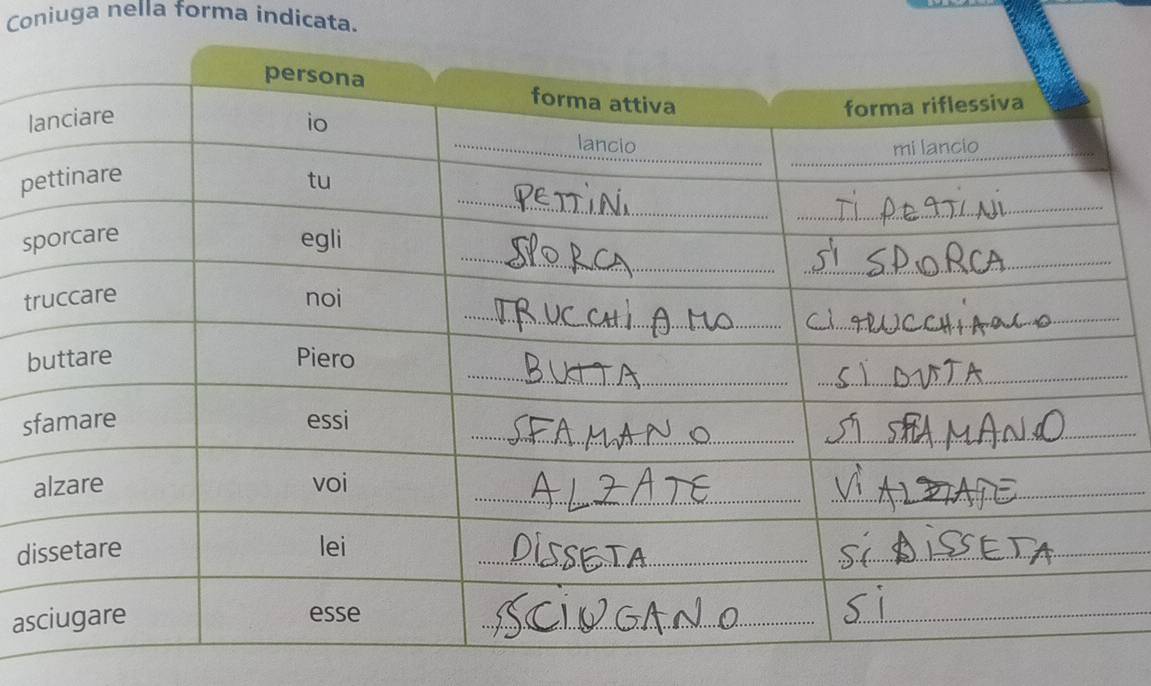 Coniuga nella forma indicata.
persona forma attiva forma riflessiva
lanciare io lancio mi lancio
pettinare tu PETTINI TI PETTINI
sporcare egli SPORCA SI SPORCA
truccare noi TRUCCHIAMO CI TRUCCHIAMO
buttare Piero BUTTA SI BUTTA
sfamare essi SFAMANO SI SFAMANO
alzare voi ALZATE VI ALZATE
dissetare lei DISSETA SI DISSETA
asciugare esse SCIUGANO SI